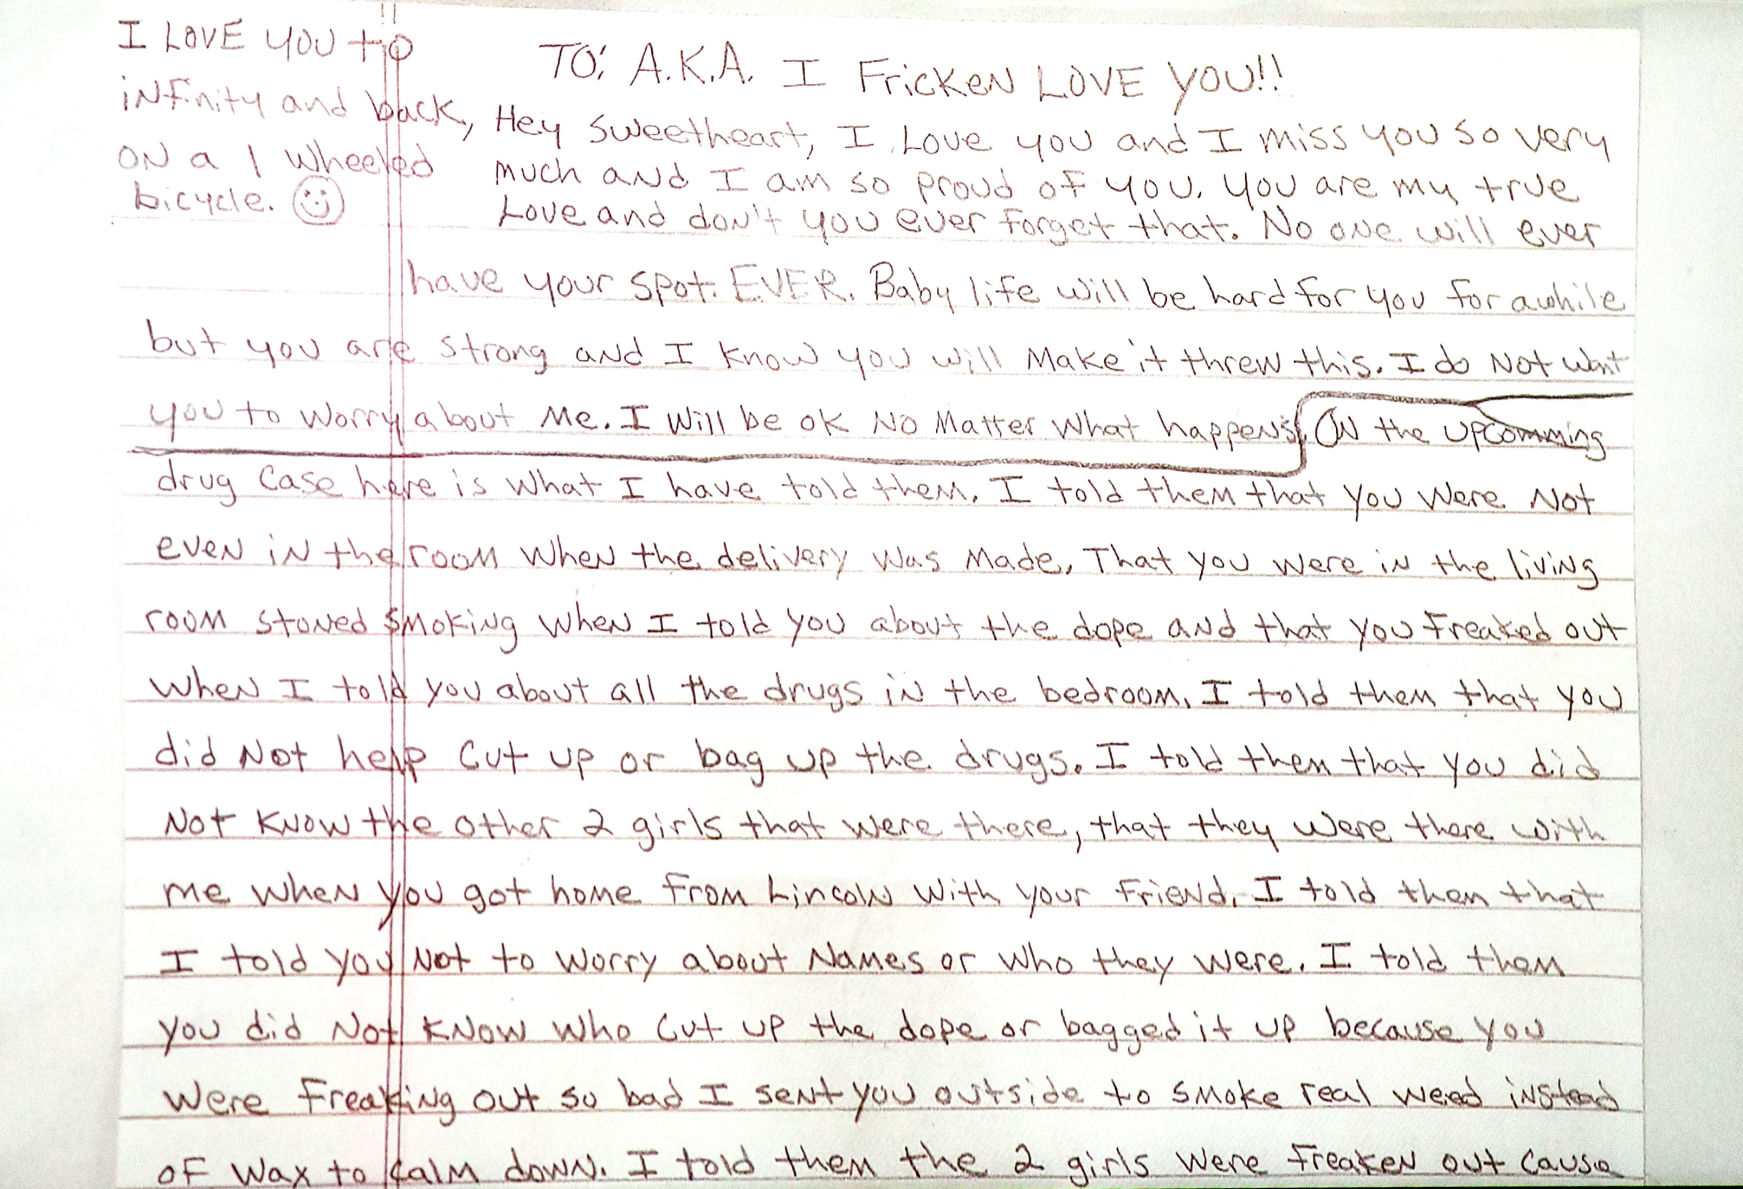 I LOVE YOU to
infinity and back,
ON a 1 wheeled
bicycle.
TO: A.K.A. I Fricken LOVE YOU!!
Hey sweetheart, I Love you and I miss you so very
much and I am so proud of you. You are my true
Love and don't you ever forget that. No one will ever
have your spot. EVER. Baby life will be hard for you for awhile
but you are strong and I know you will make it threw this. I do Not want
you to worry about Me. I will be ok No Matter what happens. ON the upcomming
drug case here is what I have told them. I told them that you were Not
even in the room when the delivery was Made. That you were in the living
room stoned smoking when I told you about the dope and that you Freaked out
when I told you about all the drugs in the bedroom. I told them that you
did Not help cut up or bag up the drugs. I told them that you did
Not know the other 2 girls that were there, that they were there with
me when you got home from Lincoln with your friend. I told them that
I told you Not to worry about Names or who they were. I told them
you did Not know who cut up the dope or bagged it up because you
were freaking out so bad I sent you outside to smoke real weed instead
of wax to calm down. I told them the 2 girls were freaken out cause